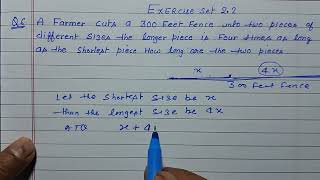 EXERCISE Set 2.2
Q6. A Farmer Cuts a 300 Feet Fence into two pieces of
different Sizes the longer piece is Four times as long
as the Shortest piece How long are the two pieces
x 4x
300 feet fence
Let the Shortest Size be x
then the longest Size be 4x
ATQ x + 4